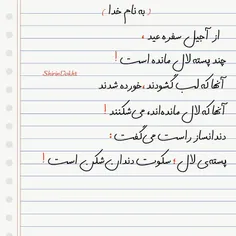 ( به نام خدا )
از آجیل سفره عید ،
چند پسته لال مانده است !
ShirinDokht
آنها که لب گشودند ، خورده شدند
آنها که لال مانده‌اند ، می‌شکنند !
دندانساز راست می‌گفت :
پسته‌ی لال ؛ سکوت دندان شکن است !